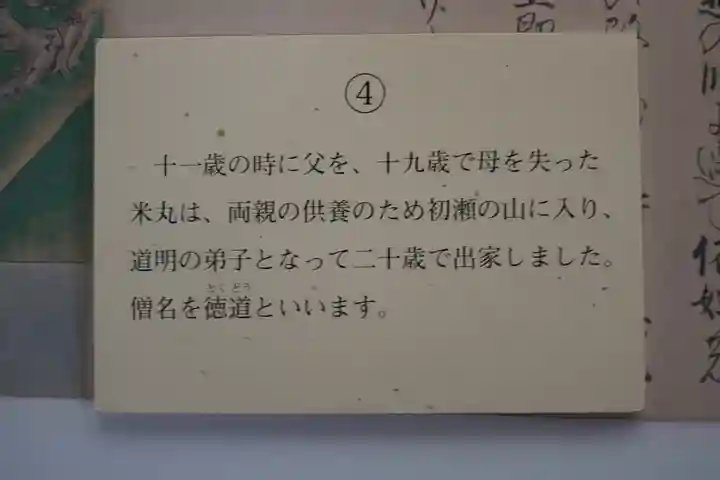 ④
十一歳の時に父を、十九歳で母を失った
米丸は、両親の供養のため初瀬の山に入り、
道明の弟子となって二十歳で出家しました。
とくどう
僧名を徳道といいます。